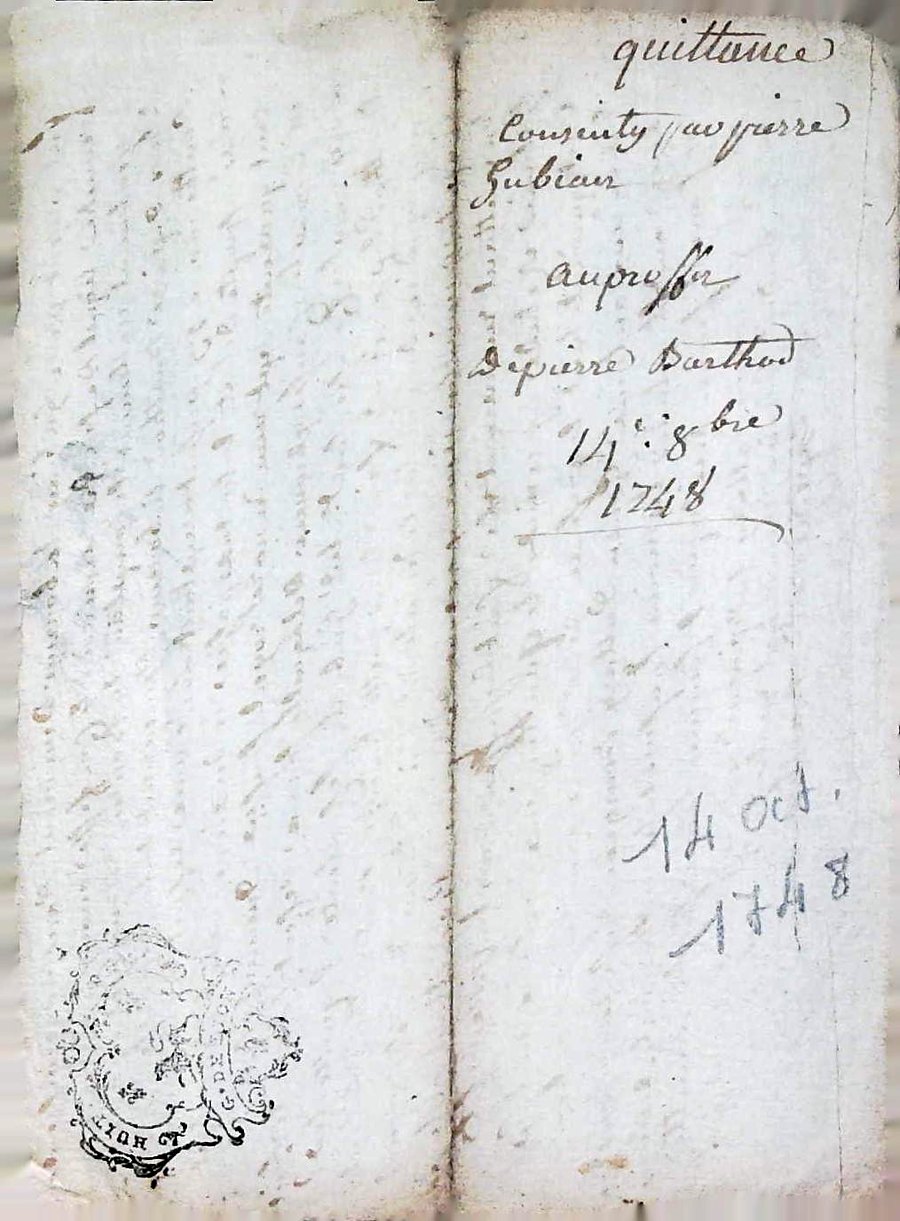 quittance
Consenty par pierre
Gubian
au proffit
De pierre Barthod
14e. 8bre
1748
14 oct.
1748
G. DE
HUIT